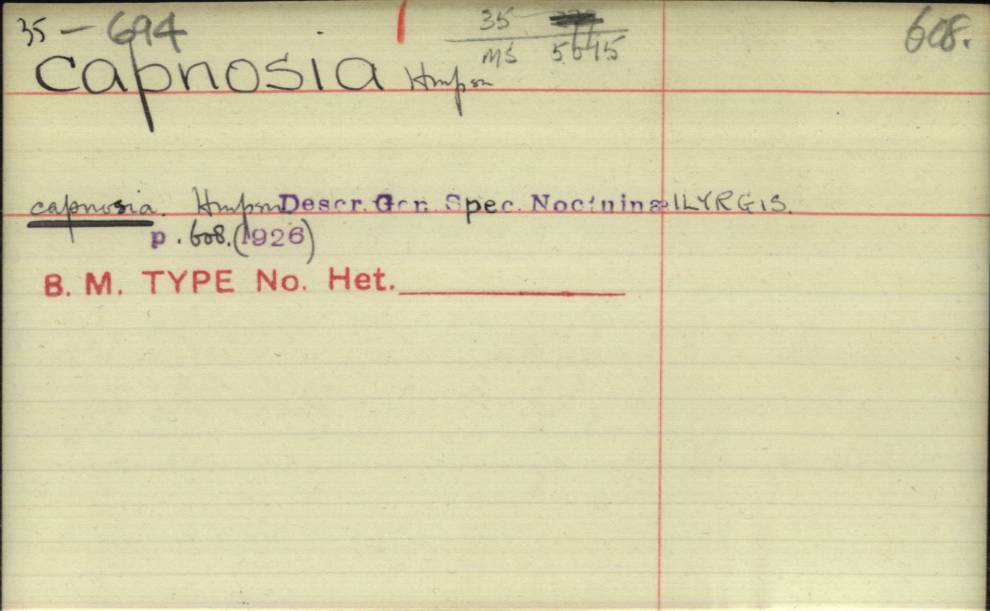 35 - 694
35
MS 5645
608.
capnosia Hmpsn
capnosia. Hmpsn Descr. Gen. Spec. Noctuinæ ILYRGIS.
p. 608. (1926)
B. M. TYPE No. Het.